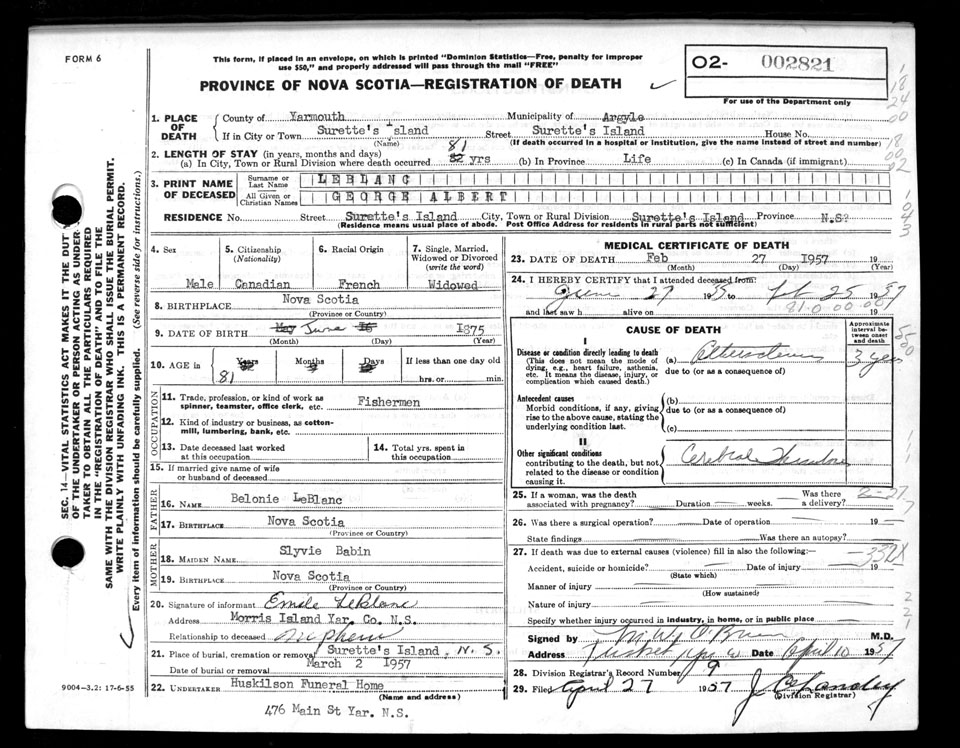 FORM 6
This form, if placed in an envelope, on which is printed "Dominion Statistics—Free, penalty for improper
use $50," and properly addressed will pass through the mail "FREE"
PROVINCE OF NOVA SCOTIA—REGISTRATION OF DEATH
O2- 002821
For use of the Department only
1. PLACE OF DEATH
County of Yarmouth Municipality of Argyle
If in City or Town Surette's Island Street Surette's Island House No.
(Name) (If death occurred in a hospital or institution, give the name instead of street and number)
2. LENGTH OF STAY (in years, months and days)
(a) In City, Town or Rural Division where death occurred 82 81 yrs (b) In Province Life (c) In Canada (if immigrant)
3. PRINT NAME OF DECEASED
Surname or Last Name LEBLANC
All Given or Christian Names GEORGE ALBERT
RESIDENCE No. Street Surette's Island City, Town or Rural Division Surette's Island Province N.S?
(Residence means usual place of abode. Post Office Address for residents in rural parts not sufficient)
4. Sex Male
5. Citizenship (Nationality) Canadian
6. Racial Origin French
7. Single, Married, Widowed or Divorced (write the word) Widowed
8. BIRTHPLACE Nova Scotia
(Province or Country)
9. DATE OF BIRTH May June 16 I875
(Month) (Day) (Year)
10. AGE in Years Months Days If less than one day old
81 hrs. or min.
OCCUPATION
11. Trade, profession, or kind of work as spinner, teamster, office clerk, etc. Fishermen
12. Kind of industry or business, as cotton-mill, lumbering, bank, etc.
13. Date deceased last worked at this occupation
14. Total yrs. spent in this occupation
15. If married give name of wife or husband of deceased
FATHER
16. NAME Belonie LeBlanc
17. BIRTHPLACE Nova Scotia
(Province or Country)
MOTHER
18. MAIDEN NAME Slyvie Babin
19. BIRTHPLACE Nova Scotia
(Province or Country)
20. Signature of informant Emile LeBlanc
Address Morris Island Yar. Co. N.S.
Relationship to deceased Nephew
21. Place of burial, cremation or removal Surette's Island, N. S.
Date of burial or removal March 2 I957
22. UNDERTAKER Huskilson Funeral Home
(Name and address)
476 Main St Yar. N.S.
MEDICAL CERTIFICATE OF DEATH
23. DATE OF DEATH Feb 27 I957 19
(Month) (Day) (Year)
24. I HEREBY CERTIFY that I attended deceased from:
June 27 1955 to Feb 25 1957
and last saw h alive on 19
CAUSE OF DEATH
Approximate interval between onset and death
I
Disease or condition directly leading to death
(This does not mean the mode of dying, e.g., heart failure, asthenia, etc. It means the disease, injury, or complication which caused death.)
(a) 3 yrs
due to (or as a consequence of)
Antecedent causes
Morbid conditions, if any, giving rise to the above cause, stating the underlying condition last.
(b)
due to (or as a consequence of)
(c)
II
Other significant conditions
contributing to the death, but not related to the disease or condition causing it.
Cerebral
25. If a woman, was the death associated with pregnancy? Duration weeks. Was there a delivery?
26. Was there a surgical operation? Date of operation 19
State findings Was there an autopsy?
27. If death was due to external causes (violence) fill in also the following:—
Accident, suicide or homicide? Date of injury 19
(State which)
Manner of injury
(How sustained)
Nature of injury
Specify whether injury occurred in industry, in home, or in public place
Signed by O'Brien M.D.
Address Tusket Date April 10 1957
28. Division Registrar's Record Number 9
29. Filed April 27 1957
(Division Registrar)
SEC. 14—VITAL STATISTICS ACT MAKES IT THE DUTY
OF THE UNDERTAKER OR PERSON ACTING AS UNDER-
TAKER TO OBTAIN ALL THE PARTICULARS REQUIRED
IN THE "REGISTRATION OF DEATH" AND TO FILE THE
SAME WITH THE DIVISION REGISTRAR WHO SHALL ISSUE THE BURIAL PERMIT.
WRITE PLAINLY WITH UNFADING INK. THIS IS A PERMANENT RECORD.
Every item of information should be carefully supplied. (See reverse side for instructions.)
9004—3.2: 17-6-55